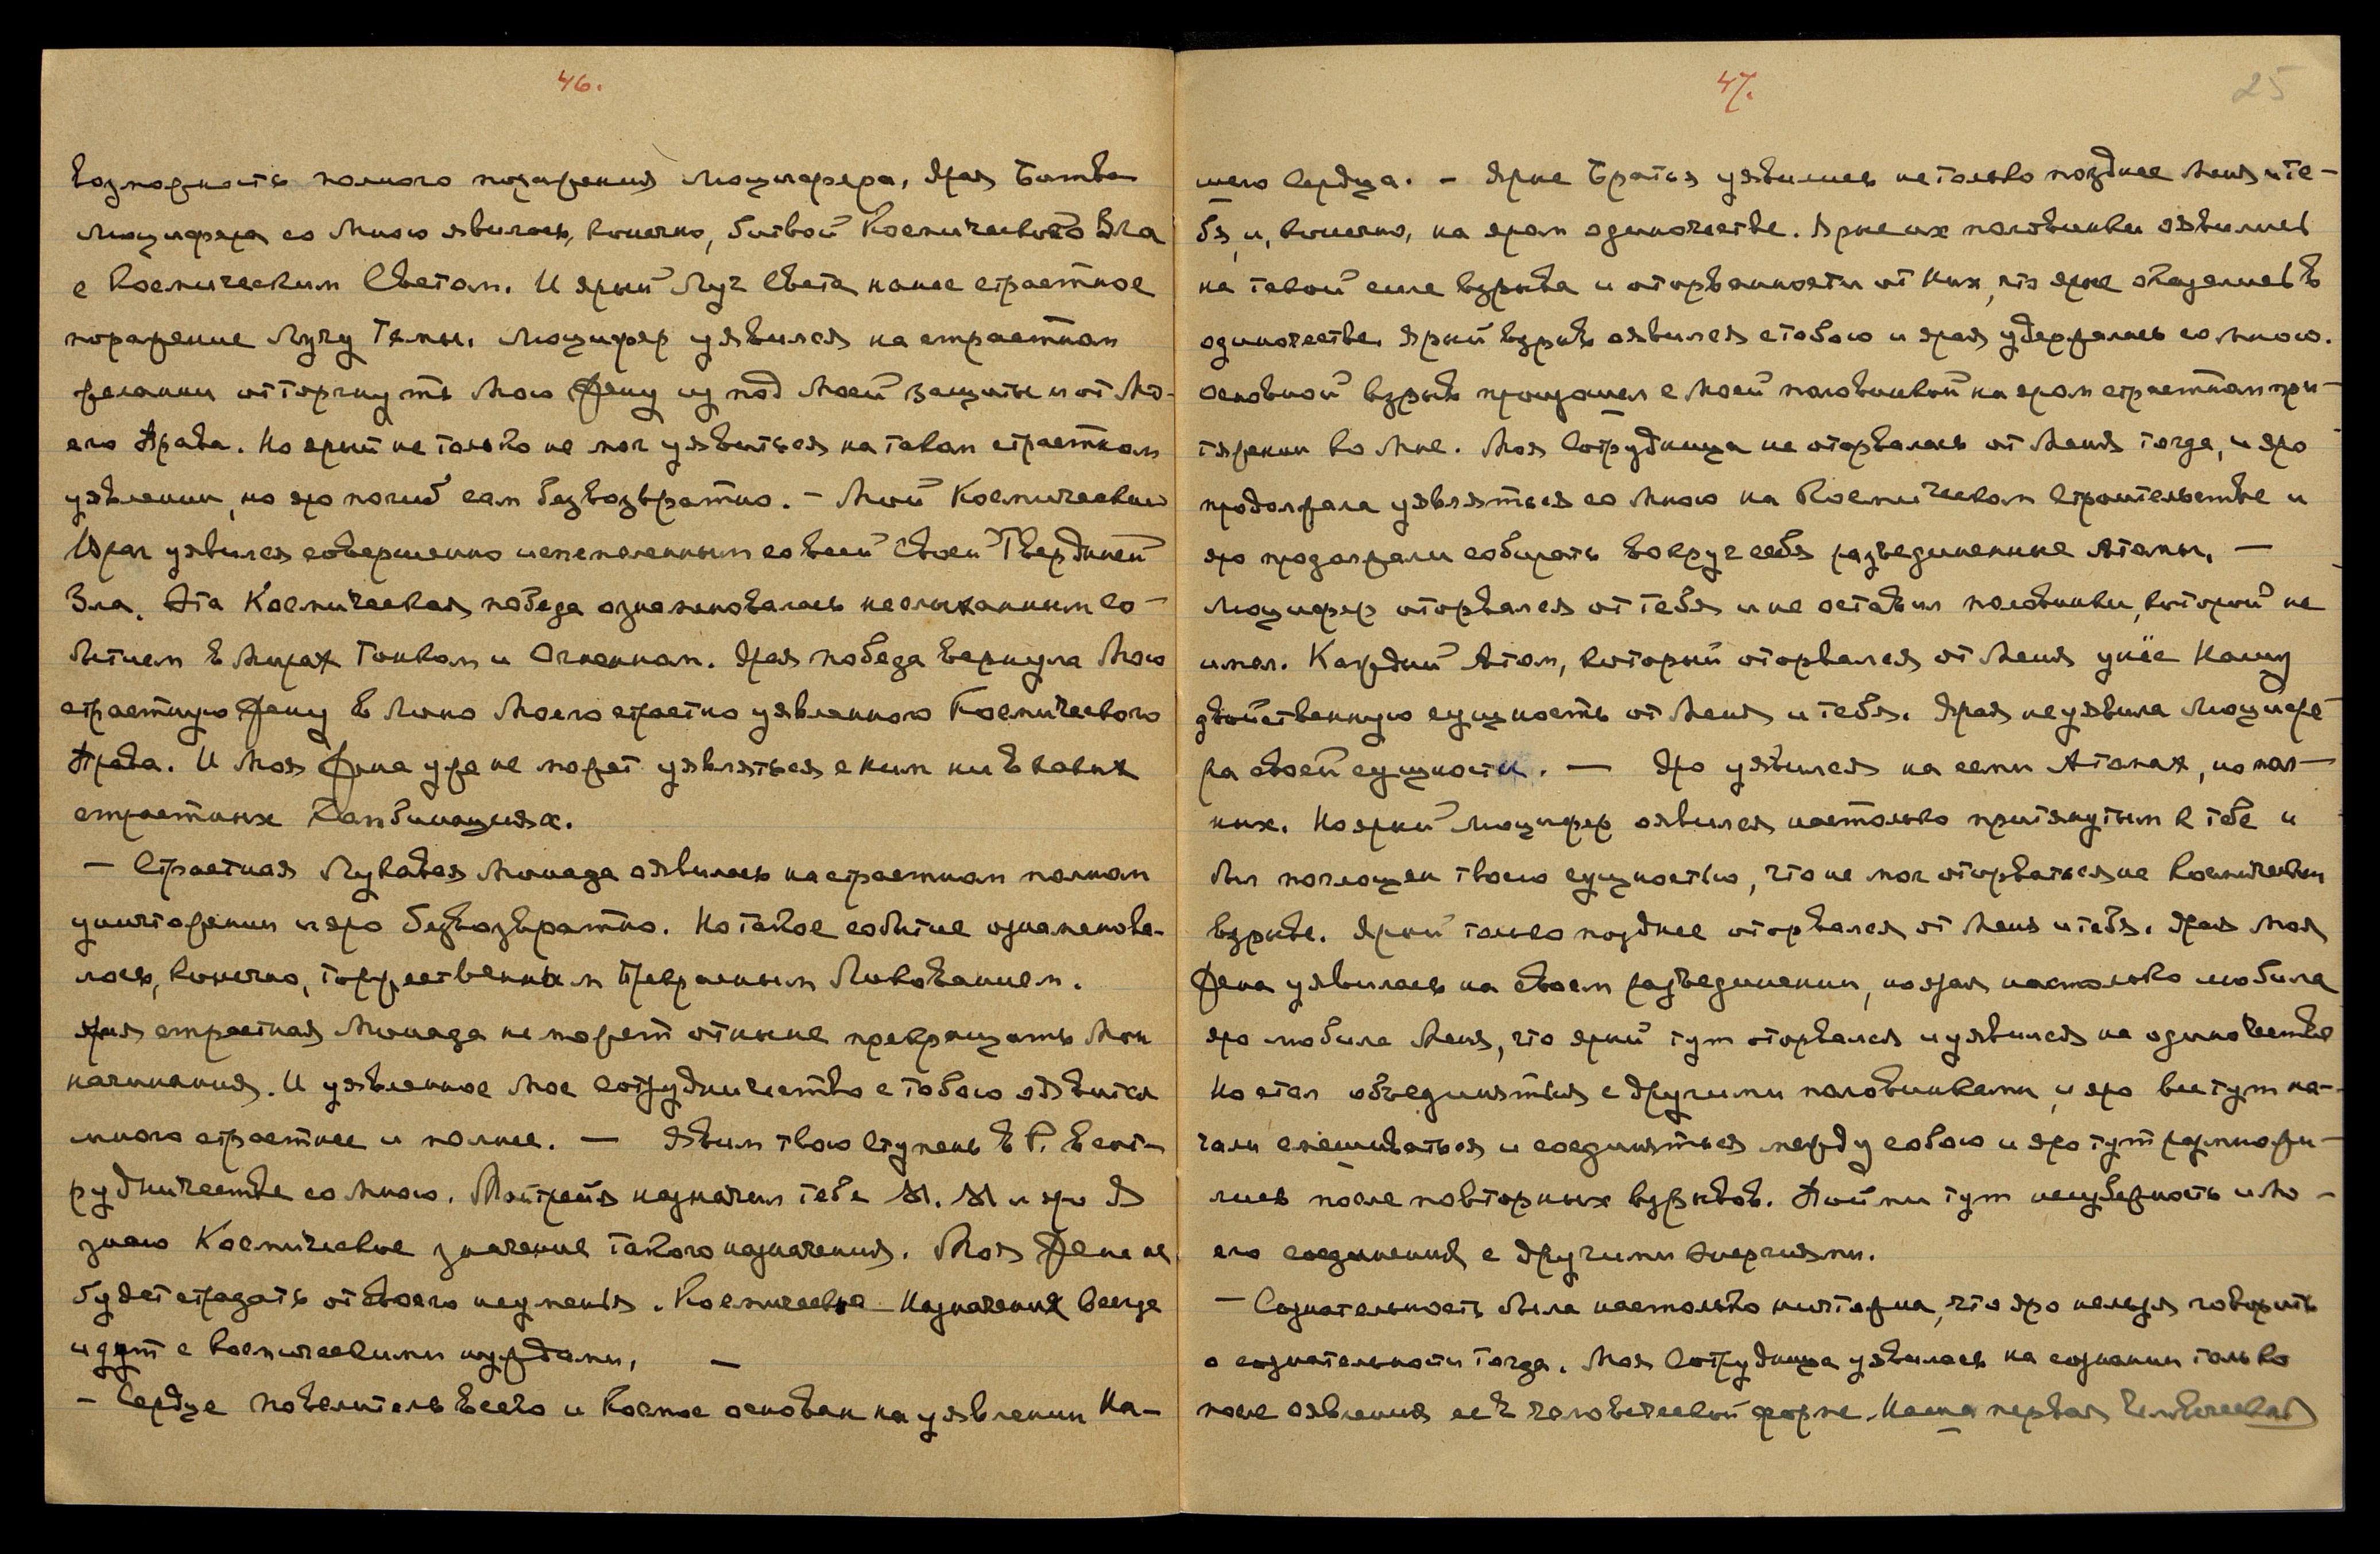 46.
возможность полного поражения Люцифера, Ярая Битва
Люцифера со Мною явилась, конечно, битвой Космического Зла
с Космическим Светом. И ярый Луч Света нанес страстное
поражение Лучу Тьмы. Люцифер уявился на страстном
желании отторгнуть Мою Жену из под Моей защиты и от Мо-
его Права. Но ярый не только не мог уявиться на таком страстном
уявлении, но яро погиб сам безвозвратно. – Мой Космический
Враг уявился совершенно испепеленным со всей Своей Твердыней
Зла. Эта Космическая победа ознаменовалась неслыханным со-
бытием в Мирах Тонком и Огненном. Ярая победа вернула Мою
страстную Жену в Лоно Моего страстно уявленного Космического
Права. И Моя Жена уже не может уявляться с ним ни в каких
страстных Комбинациях.
– Страстная Лукавая Монада оявилась на страстном полном
уничтожении и яро безвозвратно. Но такое событие ознаменова-
лось, конечно, торжественным Прекрасным Ликованием.
Ярая страстная Монада не может отныне прекращать Мои
начинания. И уявленное Мое сотрудничество с тобою оявится
много страстнее и полнее. – Явим твою Ступень в Р. в сот-
рудничестве со Мною. Майтрейя назначил тебе и яро Я
знаю Космическое значение такого назначения. Моя Жена не
будет страдать от своего неуменья. Космические Назначения всегда
идут с космическими нуждами, –
– Сердце повелитель всего и Космос основан на уявлении На-
47.
25
шего Сердца. – Ярые Братья уявились не только позднее Меня и те-
бя, и, конечно, на яром одиночестве. Ярые их половинки оявились
на такой силе взрыва и оторванности от них, что ярые оказались в
одиночестве. Ярый взрыв оявился с тобою и ярая удержалась со Мною.
Основной взрыв произошел с Моей половинкой на яром страстном при-
тяжении ко Мне. Моя Сотрудница не оторвалась от Меня тогда, и яро
продолжала уявляться со Мною на Космическом Строительстве и
яро продолжали собирать вокруг себя разъединенные Атомы. –
Люцифер оторвался от тебя и не оставил половинки, которой не
имел. Каждый Атом, который оторвался от Меня унёс Нашу
двойственную сущность от Меня и тебя. Ярая не уявила Люцифе-
ра своей сущности. – Яро уявился на семи Атомах, но пол-
ных. Но ярый Люцифер оявился настолько притянутым к тебе и
был поглощен твоею сущностью, что не мог оторваться на Космическом
взрыве. Ярый только позднее оторвался от Меня и тебя. Ярая Моя
Жена уявилась на своем разъединении, но ярая настолько любила
яро любила Меня, что ярый тут оторвался и уявился на одиночестве
Но стал объединяться с другими половинками, и яро все тут на-
чали смешиваться и соединяться между собою и яро тут размножи-
лись после повторных взрывов. Пойми тут неизбежность и Мо-
его соединения с другими энергиями.
– Сознательность была настолько ничтожна, что яро нельзя говорить
о сознательности тогда. Моя Сотрудница уявилась на сознании только
после оявления ее в человеческой форме. Наша первая Человеческая